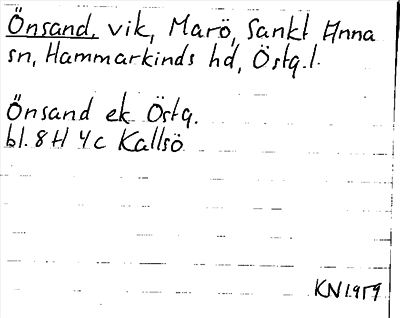 Önsand, vik, Marö, Sankt Anna
sn, Hammarkinds hd, Östg.l.
Önsand ek Östg.
bl. 8 H 4c Kallsö
KN 1959